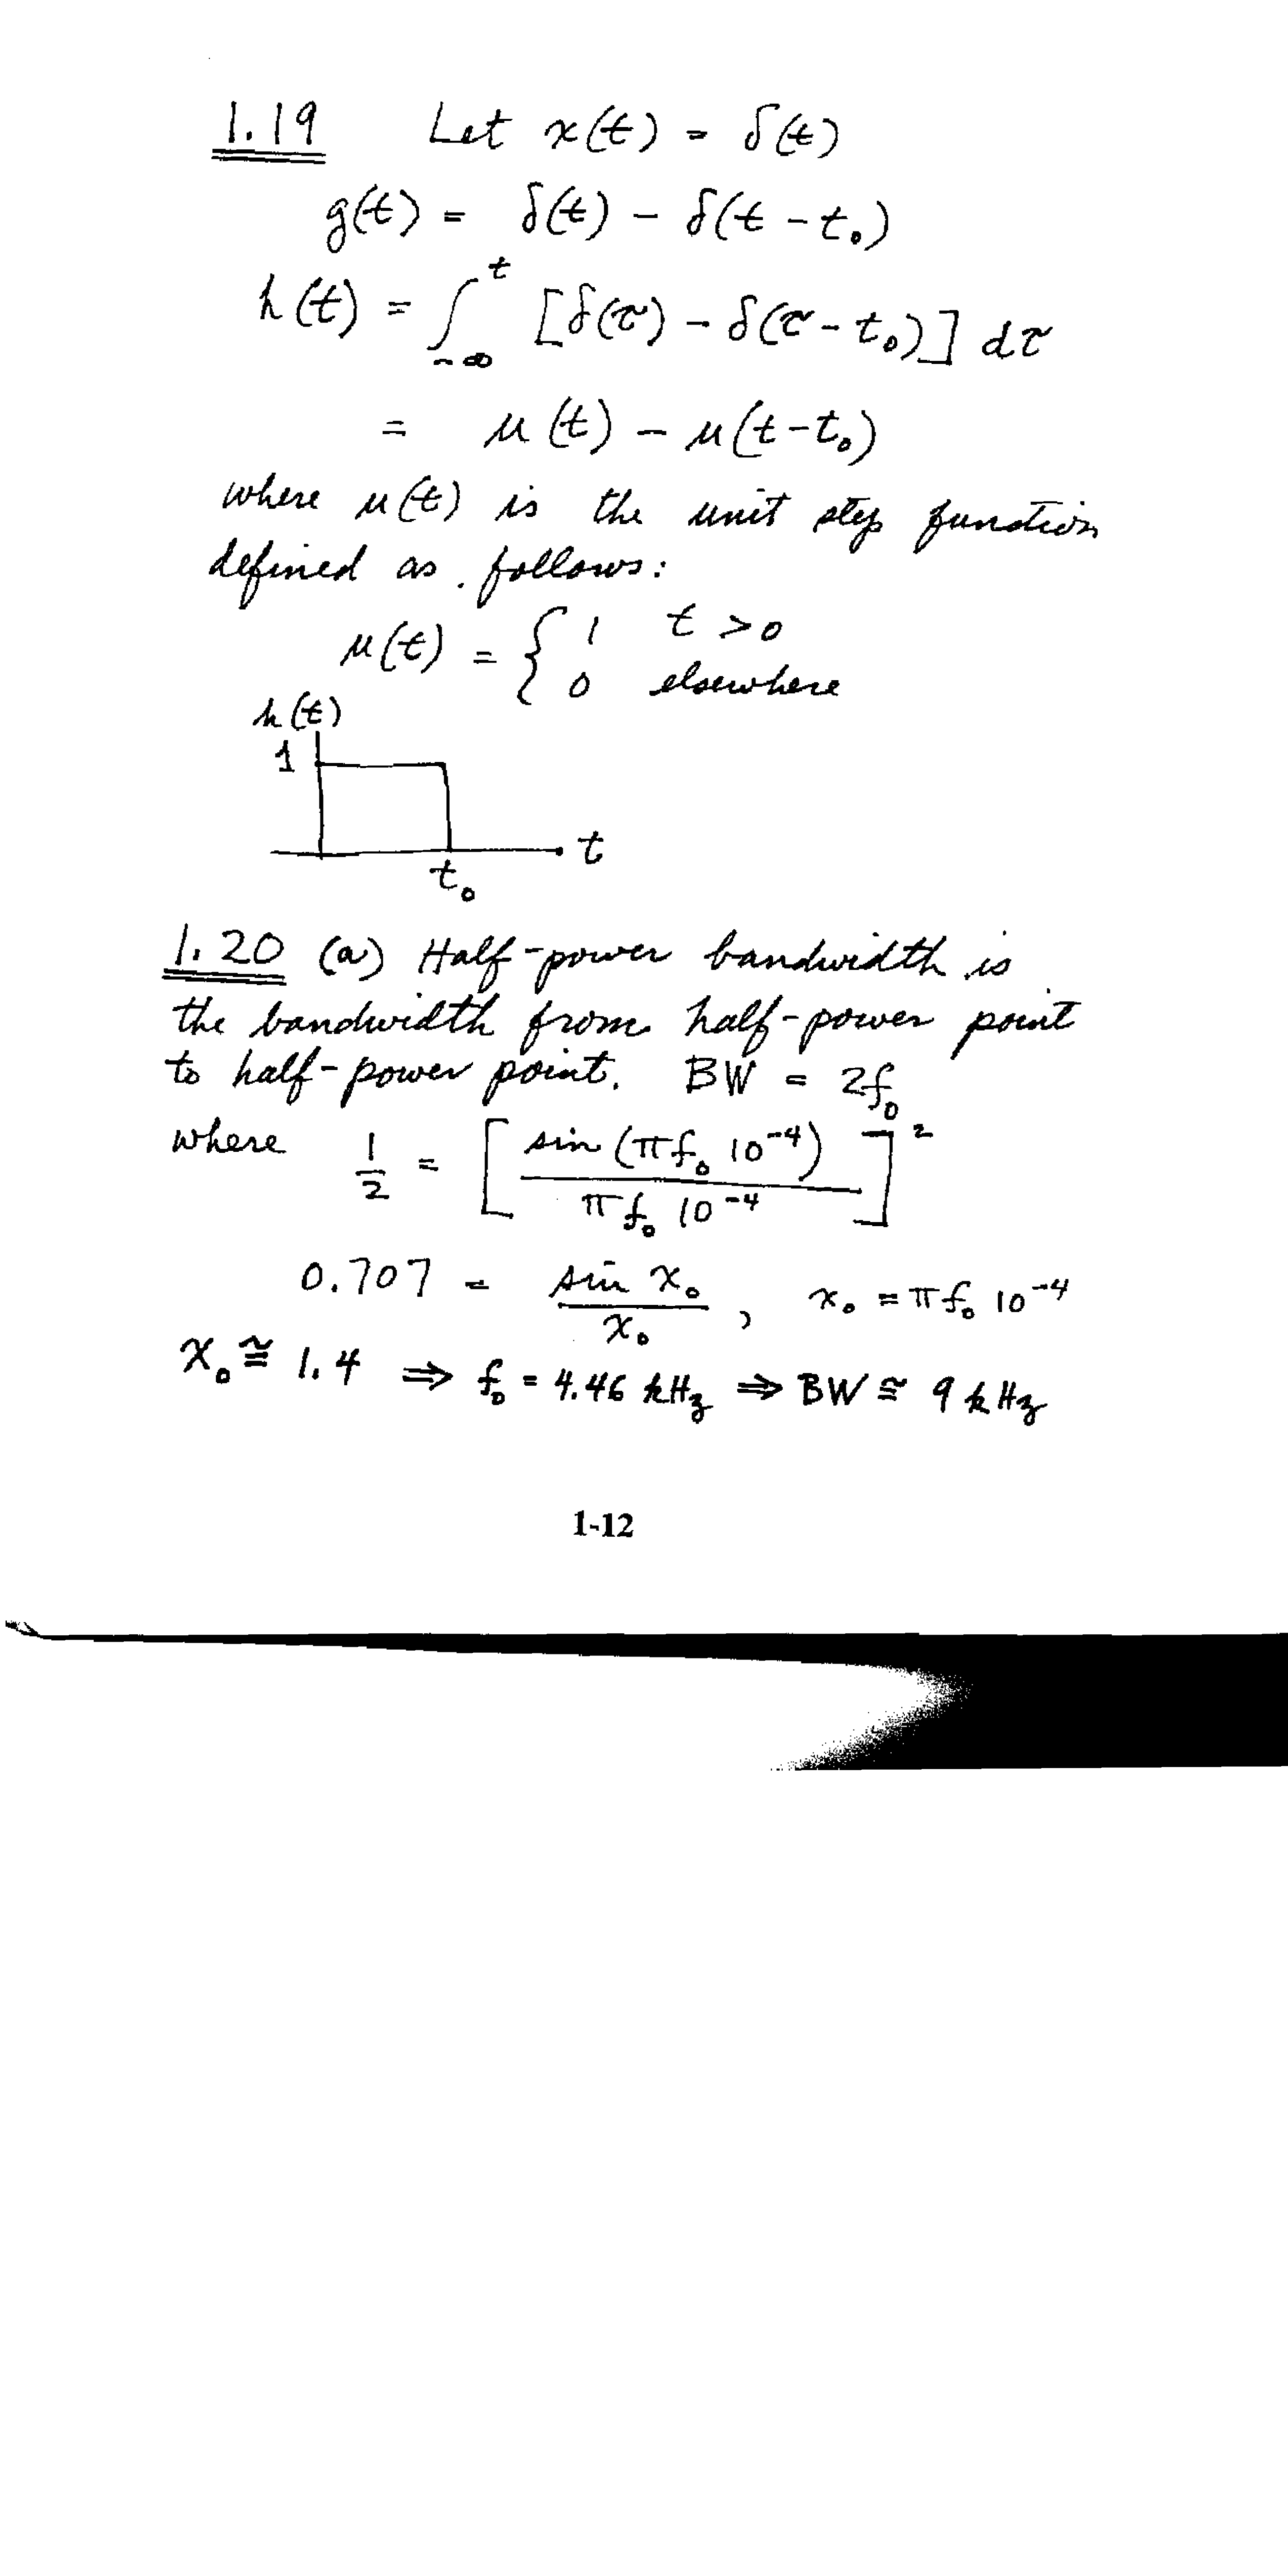 1.19 Let x(t) = δ(t)
g(t) = δ(t) - δ(t - t₀)
h(t) = ∫_{-∞}^{t} [δ(τ) - δ(τ - t₀)] dτ
= u(t) - u(t - t₀)
where u(t) is the unit step function
defined as follows:
u(t) = { 1 t > 0
0 elsewhere
h(t)
1
t
t₀
1.20 (a) Half-power bandwidth is
the bandwidth from half-power point
to half-power point. BW = 2f₀
where 1/2 = [ sin (πf₀ 10⁻⁴) / πf₀ 10⁻⁴ ]²
0.707 = sin x₀ / x₀ , x₀ = πf₀ 10⁻⁴
x₀ ≅ 1.4 ⇒ f₀ = 4.46 kHz ⇒ BW ≅ 9 kHz
1-12